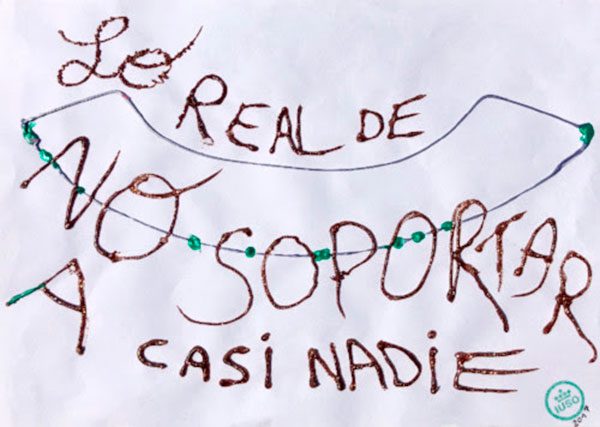 LO
REAL DE
NO SOPORTAR
A CASI NADIE
IUSO
2017